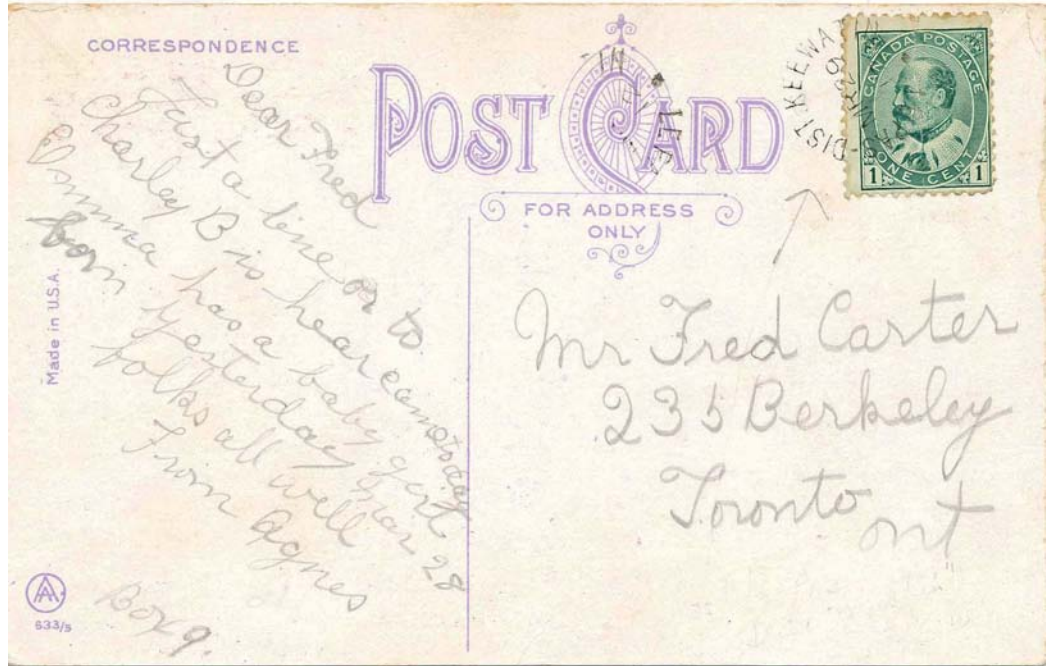 CORRESPONDENCE
POST CARD
FOR ADDRESS
ONLY
Made in U.S.A.
Dear Fred
Just a line or to
Charley B is hear came today
has a baby girl
born yesterday Mar 28
folks all well
From Agnes
Box 9.
AA
633/s
Mr Fred Carter
235 Berkeley
Toronto
ont
DIST KEEWATIN
CANADA POSTAGE
1 ONE CENT 1